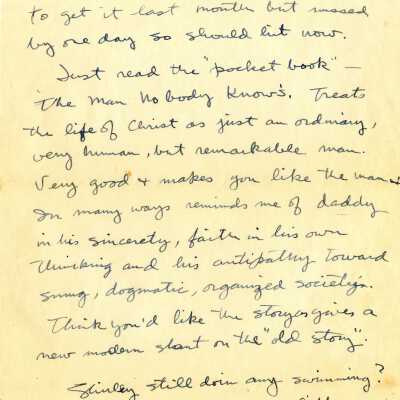 to get it last month but missed
by one day so should hit now.
Just read the "pocket book" –
The Man Nobody Knows. Treats
the life of Christ as just an ordinary,
very human, but remarkable man.
Very good & makes you like the man &
In many ways reminds me of daddy
in his sincerety, faith in his own
thinking and his antipathy toward
smug, dogmatic, organized societys.
Think you'd like the story as gives a
new modern slant on the "old story".
Shirley still doin any swimming?